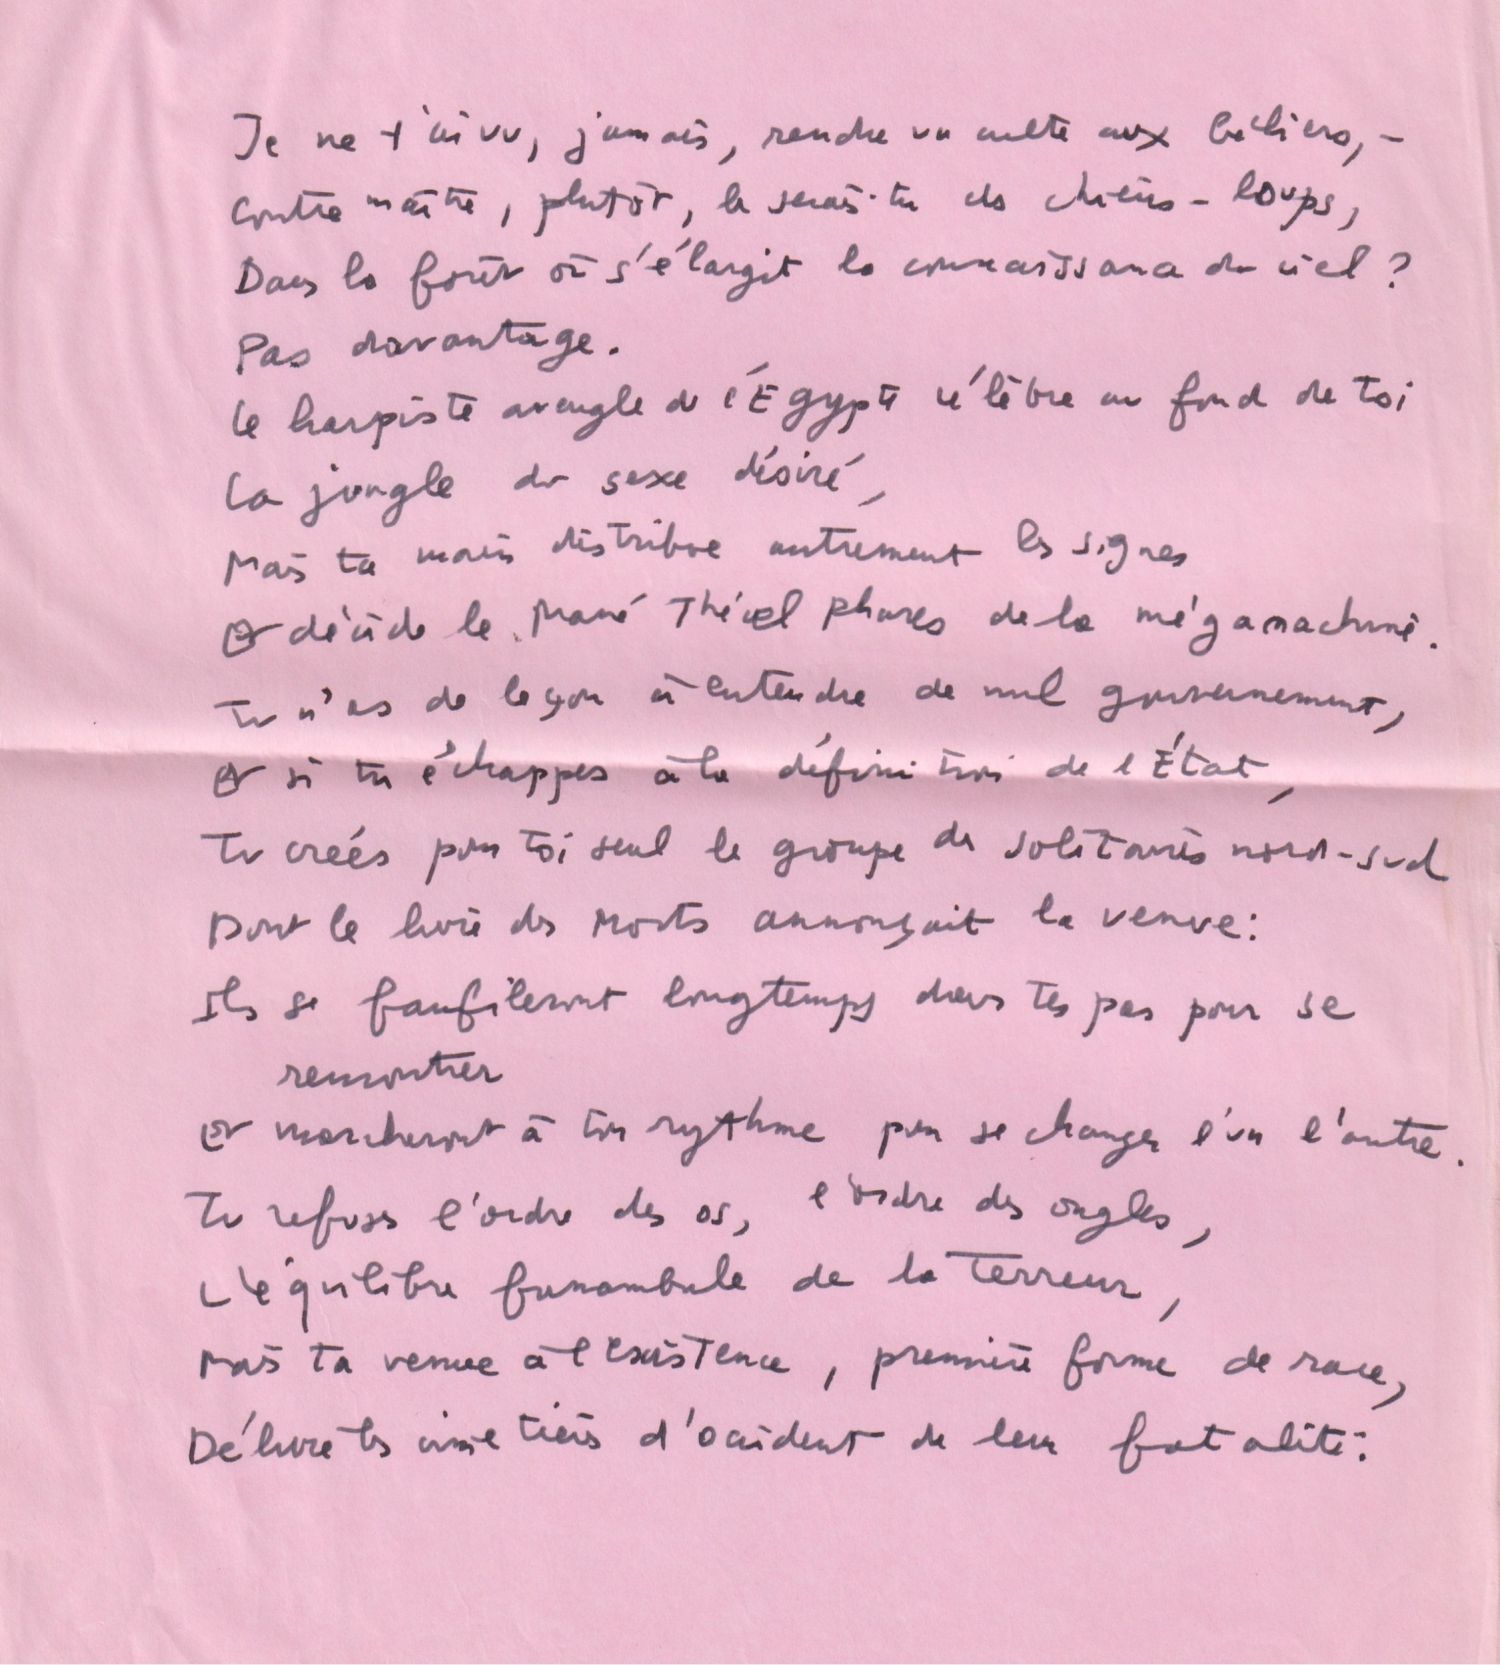 Je ne t'ai vu, jamais, rendre un culte aux béliers, -
Contremaître, plutôt, le serais-tu des chiens-loups,
Dans la forêt où s'élargit la connaissance du ciel ?
Pas davantage.
Le harpiste aveugle de l'Égypte célèbre au fond de toi
La jungle du sexe désiré,
Mais ta main distribue autrement les signes
Et décide le Mané Thécel Pharès de la mégamachine.
Tu n'as de leçon à entendre de nul gouvernement,
Et si tu échappes à la définition de l'État,
Tu créés pour toi seul le groupe de solitaires nord-sud
Dont le livre des Morts annonçait la venue :
Ils se faufileront longtemps dans tes pas pour se
rencontrer
Et marcheront à ton rythme pour se changer l'un l'autre.
Tu refuses l'ordre des os, l'ordre des ongles,
L'équilibre funambule de la Terreur,
Mais ta venue à l'existence, première forme de race,
Délivre les cimetières d'occident de leur fatalité :